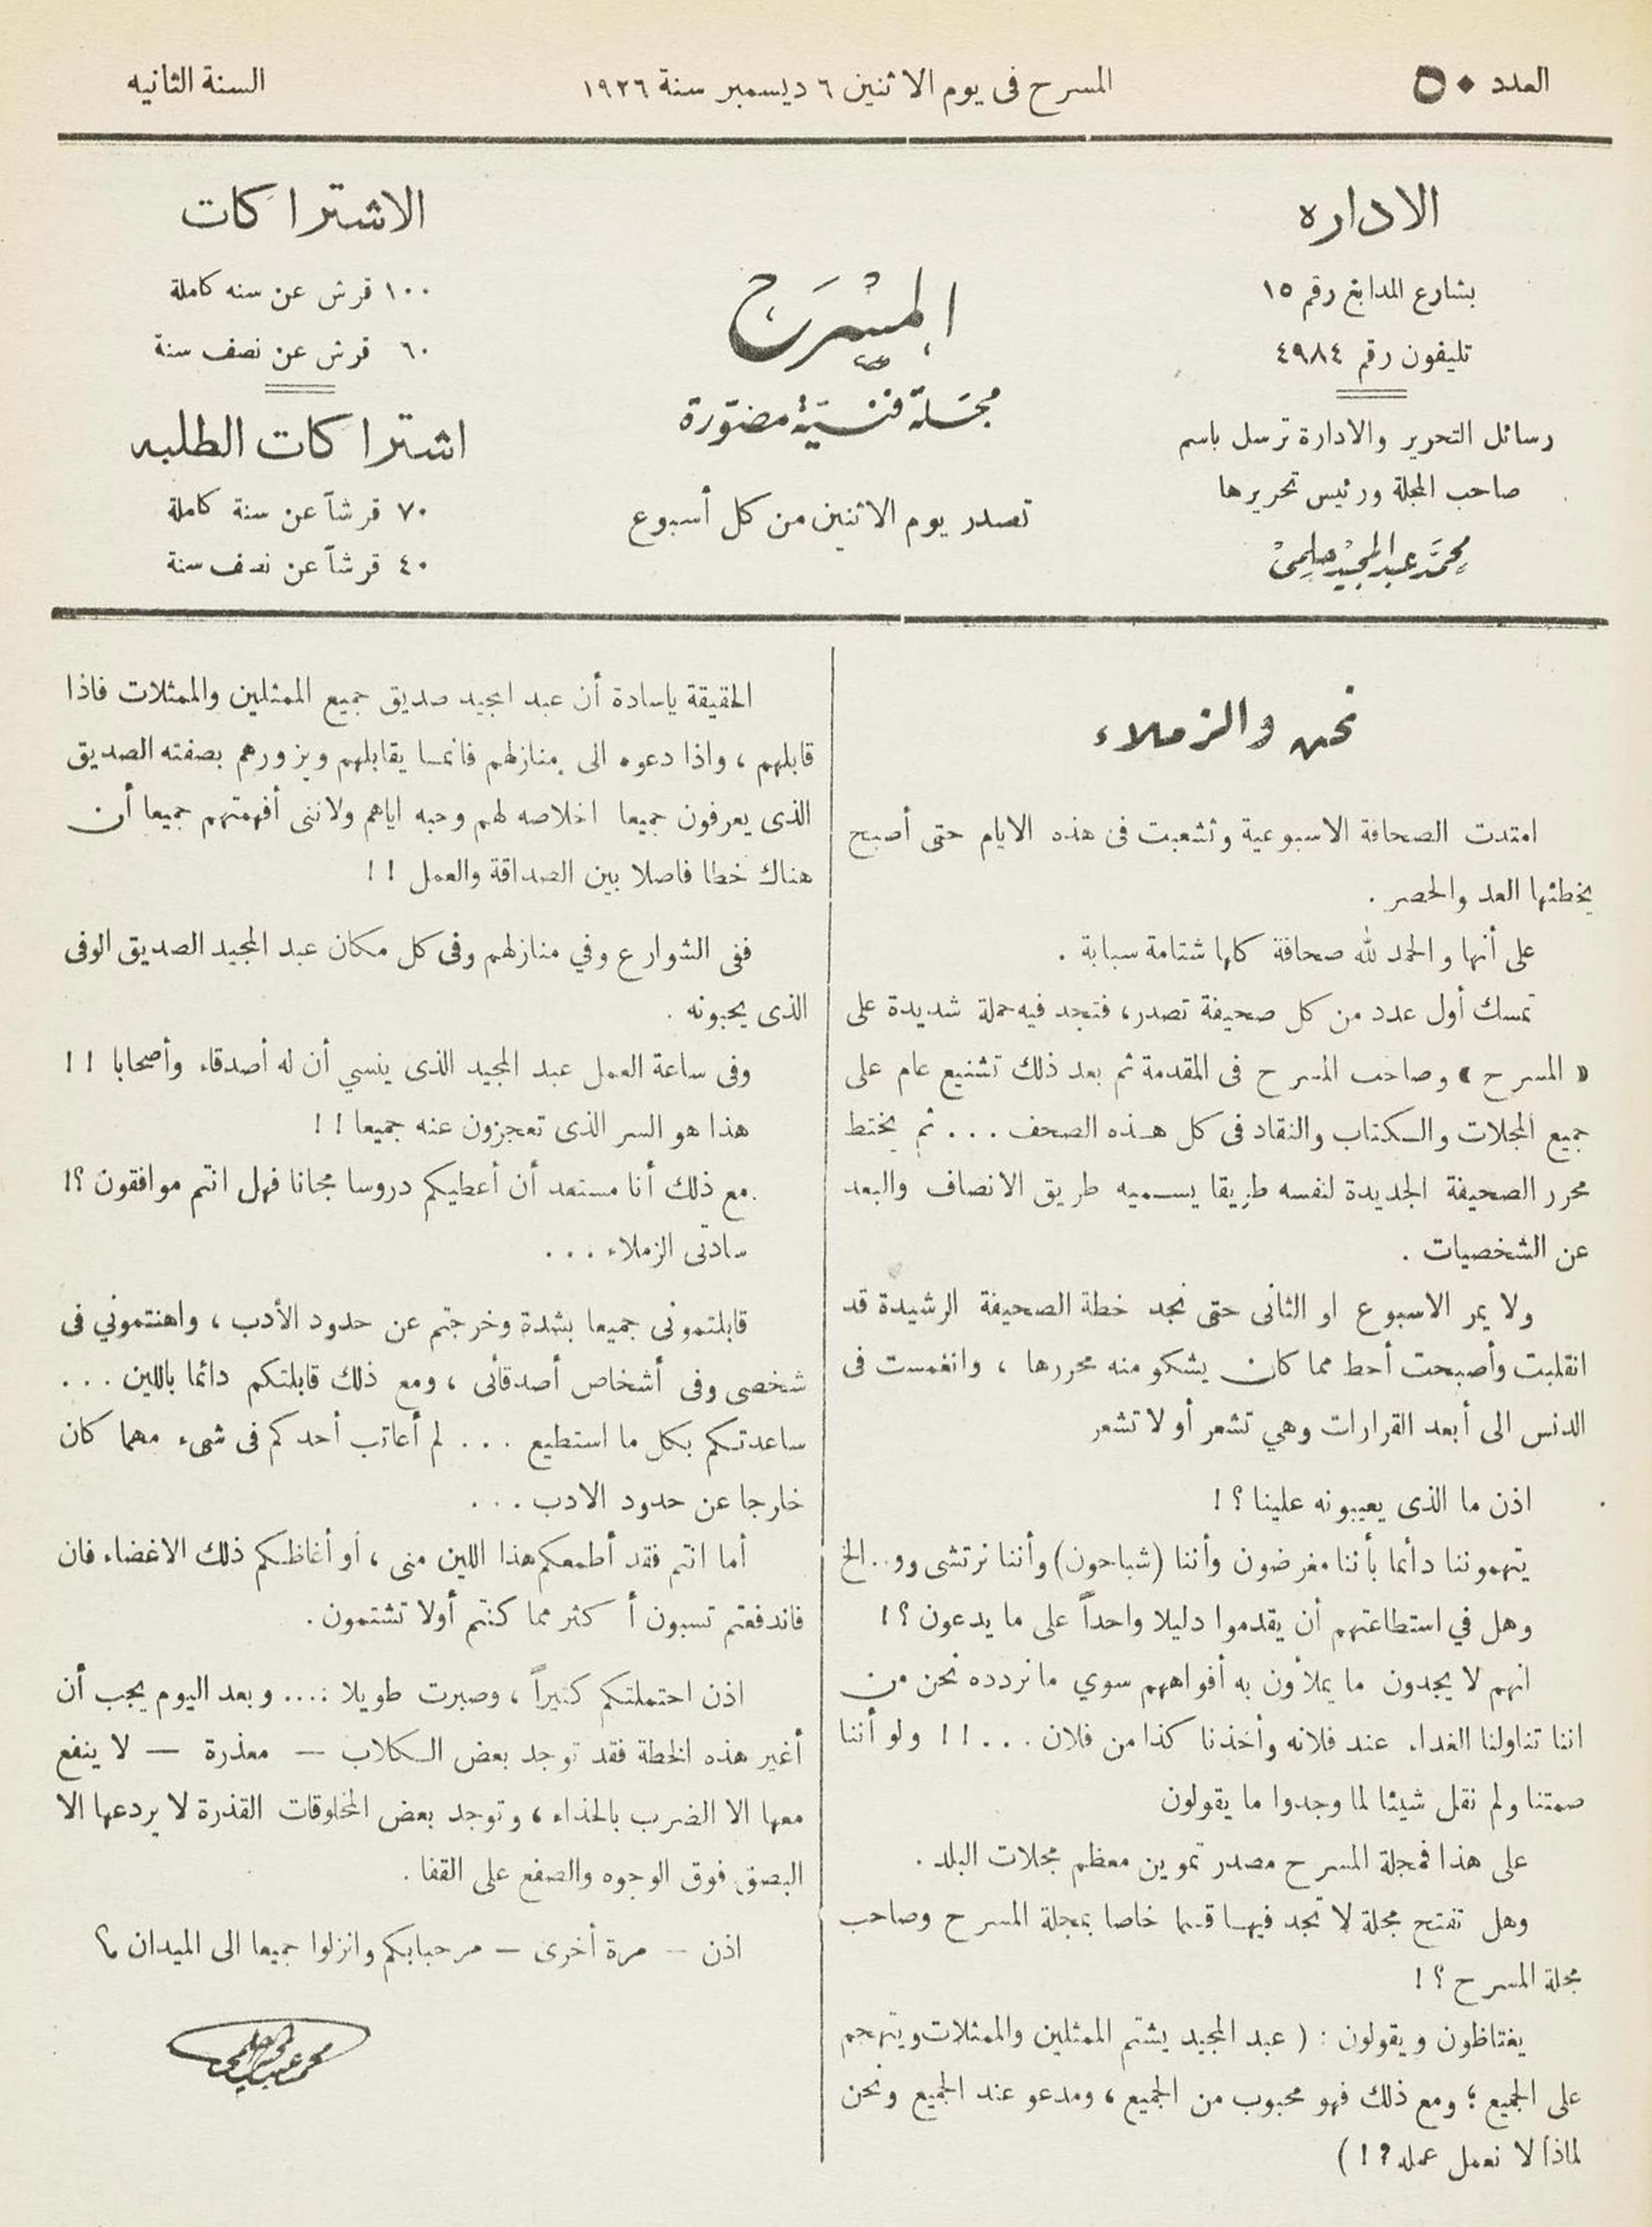 العدد ٥٠
المسرح فى يوم الاثنين ٦ ديسمبر سنة ١٩٢٦
السنة الثانيه
الاداره
بشارع المدابغ رقم ١٥
تليفون رقم ٤٩٨٤
رسائل التحرير والادارة ترسل باسم
صاحب المجلة ورئيس تحريرها
محمد عبد المجيد حلمى
المسرح
مجلة فنية مصورة
تصدر يوم الاثنين من كل أسبوع
الاشتراكات
١٠٠ قرش عن سنه كاملة
٦٠ قرش عن نصف سنة
اشتراكات الطلبه
٧٠ قرشاً عن سنة كاملة
٤٠ قرشاً عن نصف سنة
نحن والزملاء
امتدت الصحافة الاسبوعية وتشعبت فى هذه الايام حتى أصبح
يخطئها العد والحصر .
على أنها والحمد لله صحافة كلها شتامة سبابة .
تمسك أول عدد من كل صحيفة تصدر، فتجد فيه حملة شديدة على
« المسرح » وصاحب المسرح فى المقدمة ثم بعد ذلك تشنيع عام على
جميع المجلات والكتاب والنقاد فى كل هذه الصحف ... ثم يختط
محرر الصحيفة الجديدة لنفسه طريقا يسميه طريق الانصاف والبعد
عن الشخصيات .
ولا يمر الاسبوع او الثانى حتى نجد خطة الصحيفة الرشيدة قد
انقلبت وأصبحت أحط مما كان يشكو منه محررها ، وانغمست فى
الدنس الى أبعد القرارات وهي تشعر أو لا تشعر
اذن ما الذى يعيبونه علينا ؟ !
يتهموننا دأما بأننا مغرضون وأننا (شباحون) وأننا نرتشى وو .. الخ
وهل في استطاعتهم أن يقدموا دليلا واحداً على ما يدعون ؟ !
انهم لا يجدون ما يملأون به أفواههم سوي ما نردده نحن من
اننا تناولنا الغداء عند فلانه وأخذنا كذا من فلان ... ! ! ولو أننا
صمتنا ولم نقل شيئا لما وجدوا ما يقولون
على هذا فمجلة المسرح مصدر تموين معظم مجلات البلد .
وهل تفتح مجلة لا تجد فيها قسما خاصا بمجلة المسرح وصاحب
مجلة المسرح ؟ !
يغتاظون ويقولون : ( عبد المجيد يشتم الممثلين والممثلات ويتهجم
على الجميع ؛ ومع ذلك فهو محبوب من الجميع ، ومدعو عند الجميع ونحن
لماذا لا نعمل عمله ? ! )
الحقيقة ياسادة أن عبد المجيد صديق جميع الممثلين والممثلات فاذا
قابلهم ، واذا دعوه الى منازلهم فانما يقابلهم ويزورهم بصفته الصديق
الذى يعرفون جميعا اخلاصه لهم وحبه اياهم ولاننى أفهمتهم جميعا أن
هناك خطا فاصلا بين الصداقة والعمل ! !
ففى الشوارع وفي منازلهم وفى كل مكان عبد المجيد الصديق الوفى
الذى يحبونه .
وفى ساعة العمل عبد المجيد الذى ينسي أن له أصدقاء وأصحابا ! !
هذا هو السر الذى تعجزون عنه جميعا ! !
مع ذلك أنا مستعد أن أعطيكم دروسا مجانا فهل انتم موافقون ؟!
سادتى الزملاء ...
قابلتمونى جميعا بشدة وخرجتم عن حدود الأدب ، واهنتموني فى
شخصى وفى أشخاص أصدقأنى ، ومع ذلك قابلتكم دائما باللين ...
ساعدتكم بكل ما استطيع ... لم أعاتب أحدكم فى شىء مهما كان
خارجا عن حدود الادب ...
أما انتم فقد أطمعكم هذا اللين منى ، أو أغاظكم ذلك الاغضاء فان
فاندفعتم تسبون أكثر مما كنتم أولا تشتمون .
اذن احتملتكم كثيراً ، وصبرت طويلا .... وبعد اليوم يجب أن
أغير هذه الخطة فقد توجد بعض الكلاب — معذرة — لا ينفع
معها الا الضرب بالحذاء ، وتوجد بعض المخلوقات القذرة لا يردعها الا
البصق فوق الوجوه والصفع على القفا .
اذن — مرة أخرى — مرحبا بكم وانزلوا جميعا الى الميدان
محمد عبد المجيد حلمى